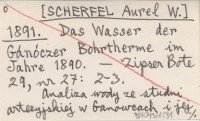 [SCHERFEL Aurel W.]
1891. Das Wasser der
Gánóczer Bohrtherme im
Jahre 1890. — Zipser Bote
29, nr 27: 2-3.
Analiza wody ze studni
artezyjskiej w Ganowcach i jej